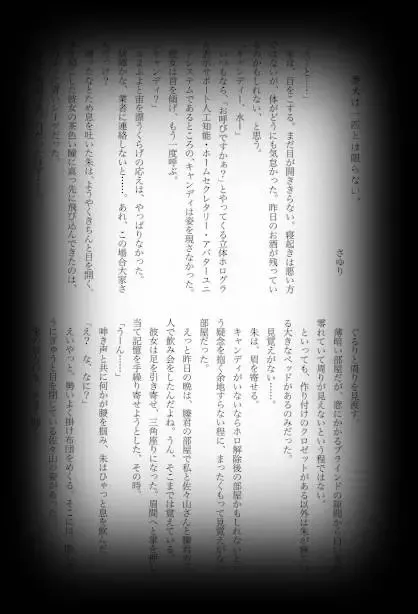 考えは一匹とは限らない、
さゆり
「うーと……」
朱は、目をこする。まだ目が開ききらない。寝起きは悪い方
ではないが、体がどうにも気怠かった。昨日のお酒が残ってい
るのかもしれない、と思う。
「キャンディー、水ー」
いつもなら、「お呼びですかぁ？」とやってくる立体ホログラ
サポート人工知能・ホームセクレタリー・アバターユニ
ステムであるところの、キャンディは姿を現さなかった。
彼女は首を傾げ、もう一度呼ぶ。
キャンディ？」
ふよふよと宙を漂うくらげの応えは、やっぱりなかった。
故障かな、業者に連絡しないと……。あれ、この場合大家さ
っけ？
ため息を吐いた朱は、ようやくきちんと目を開く。
した彼女の茶色い瞳に真っ先に飛び込んできたのは、
ぐるりと周りを見渡す。
薄暗い部屋だが、窓にかかるブラインドの隙間から
零れていて周りが見えないという程ではない。
といっても、作り付けのクロゼットがある以外は朱が
る大きなベッドがあるのみだった。
見覚えがない……。
朱は、眉を寄せる。
キャンディがいないならホロ解除後の部屋かもしれないと
う疑念を抱く余地すらない程に、まったくもって見覚えがな
部屋だった。
えっと昨日の晩は、縢君の部屋で私と佐々山さんと縢君の
人で飲み会をしたんだよね。うん、そこまでは覚えている。
彼女は足を引き寄せ、三角座りになった。眉間へと拳を
当て記憶を手繰り寄せようとした、その時。
「うーん……」
呻き声と共に何かが腰を掴み、朱はひゃっと息を飲んだ
「え？　な、なに？」
えいやっと、勢いよく掛け布団をめくる。そこに
うにぎゅうと目を閉じている佐々山の姿があった